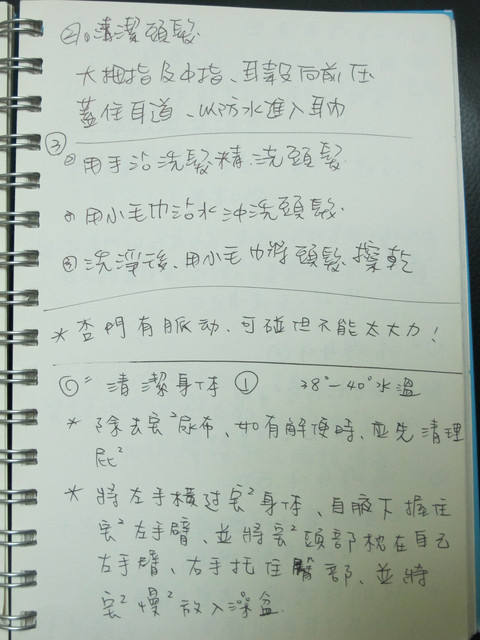 ②。清潔頭髮
大拇指及中指、耳殼向前压
蓋住耳道、以防水進入耳内
③
用手沾洗髮精.洗頭髮
用小毛巾沾水沖洗頭髮
洗淨後、用小毛巾將頭髮擦乾
*囟門有脈动、可碰但不能太大力!
清潔身体 ① 38°-40°水温
* 除去宝²尿布、如有解便時、应先清理
屁²
* 將左手横过宝²身体、自腋下握住
宝²左手臂、並將宝²頭部枕在自己
左手臂、右手托住臀部、並將
宝²慢²放入澡盆.